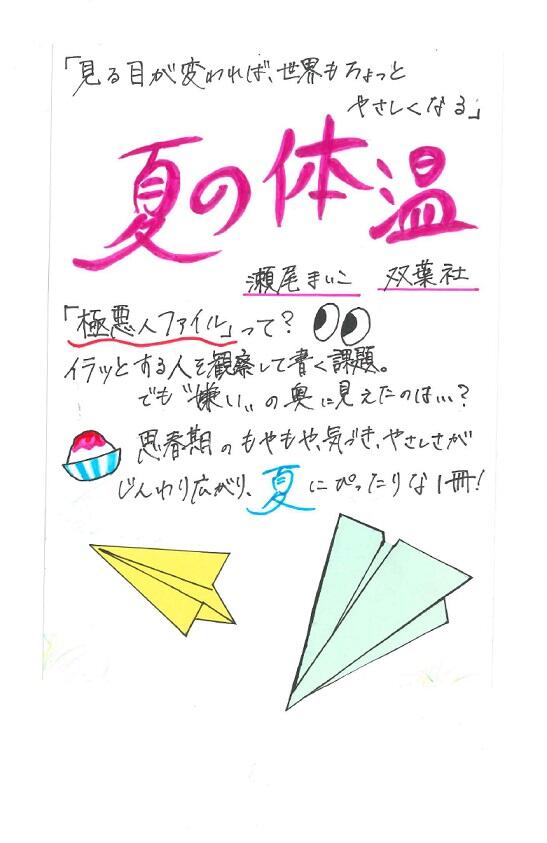 「見る目が変われば、世界もちょっと
やさしくなる」
夏の体温
瀬尾まいこ 双葉社
「極悪人ファイル」って?
イラッとする人を観察して書く課題。
でも〝嫌い〟の奥に見えたのは…?
思春期のもやもや、気づき、やさしさが
じんわり広がり、夏にぴったりな1冊!